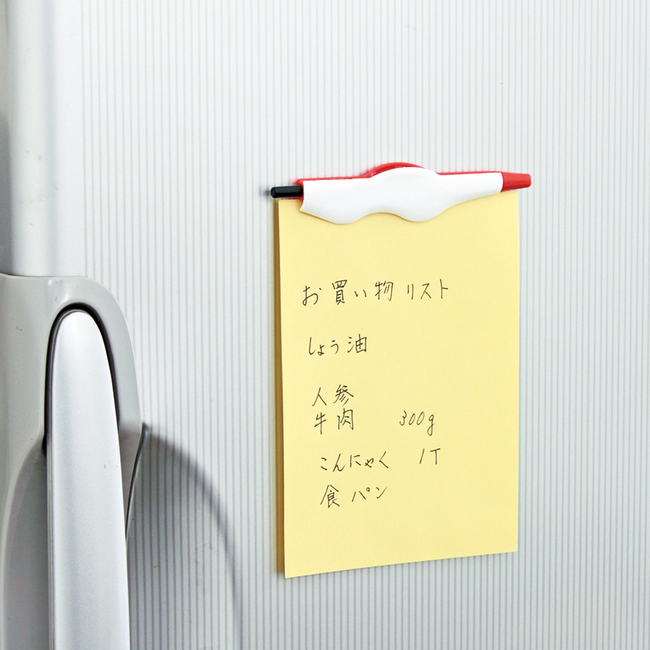 お買い物リスト
しょう油
人参
牛肉 300g
こんにゃく 1丁
食パン